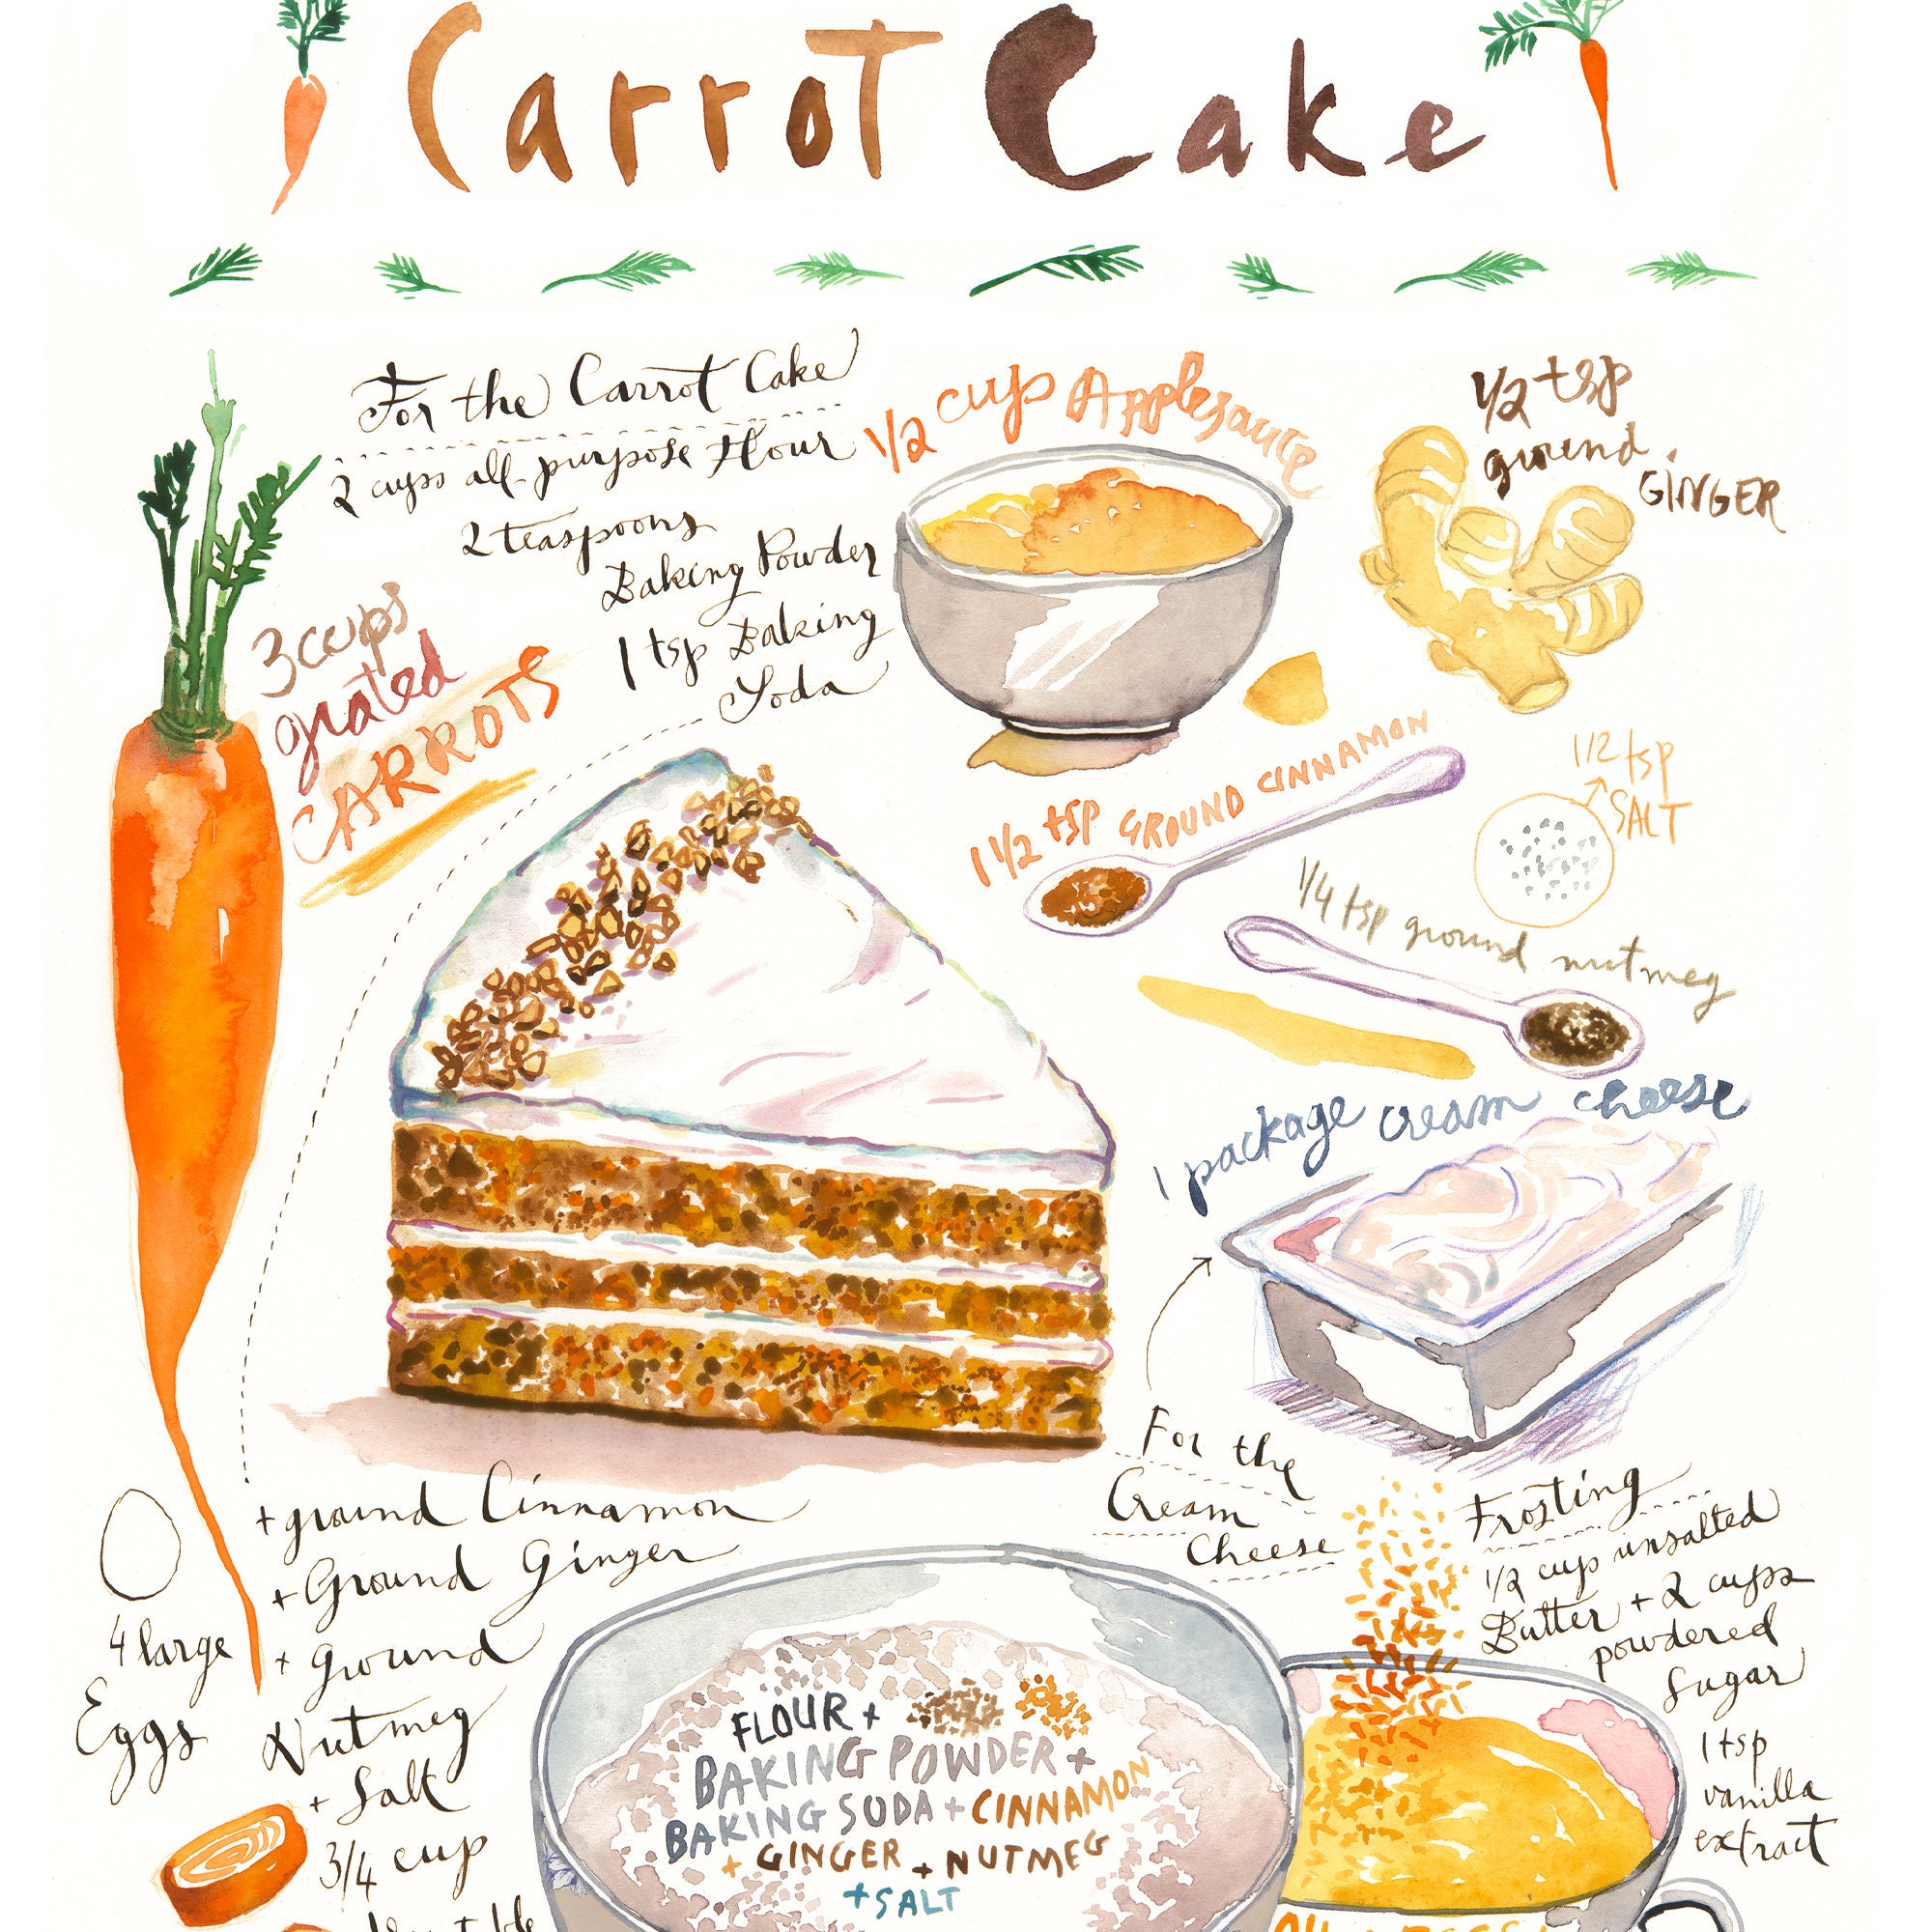 Carrot Cake
For the Carrot Cake
2 cups all-purpose Flour
2 teaspoons
Baking Powder
1 tsp Baking
Soda
1/2 cup Applesauce
1/2 tsp
ground
GINGER
3 cups
grated
CARROTS
1 1/2 tsp GROUND CINNAMON
1/2 tsp
SALT
1/4 tsp ground nutmeg
1 package cream cheese
For the
Cream
Cheese
Frosting
1/2 cup unsalted
Butter + 2 cups
powdered
Sugar
1 tsp
vanilla
extract
+ ground Cinnamon
+ Ground Ginger
+ Ground
Nutmeg
+ Salt
3/4 cup
4 large
Eggs
FLOUR +
BAKING POWDER +
BAKING SODA + CINNAMON
+ GINGER + NUTMEG
+ SALT